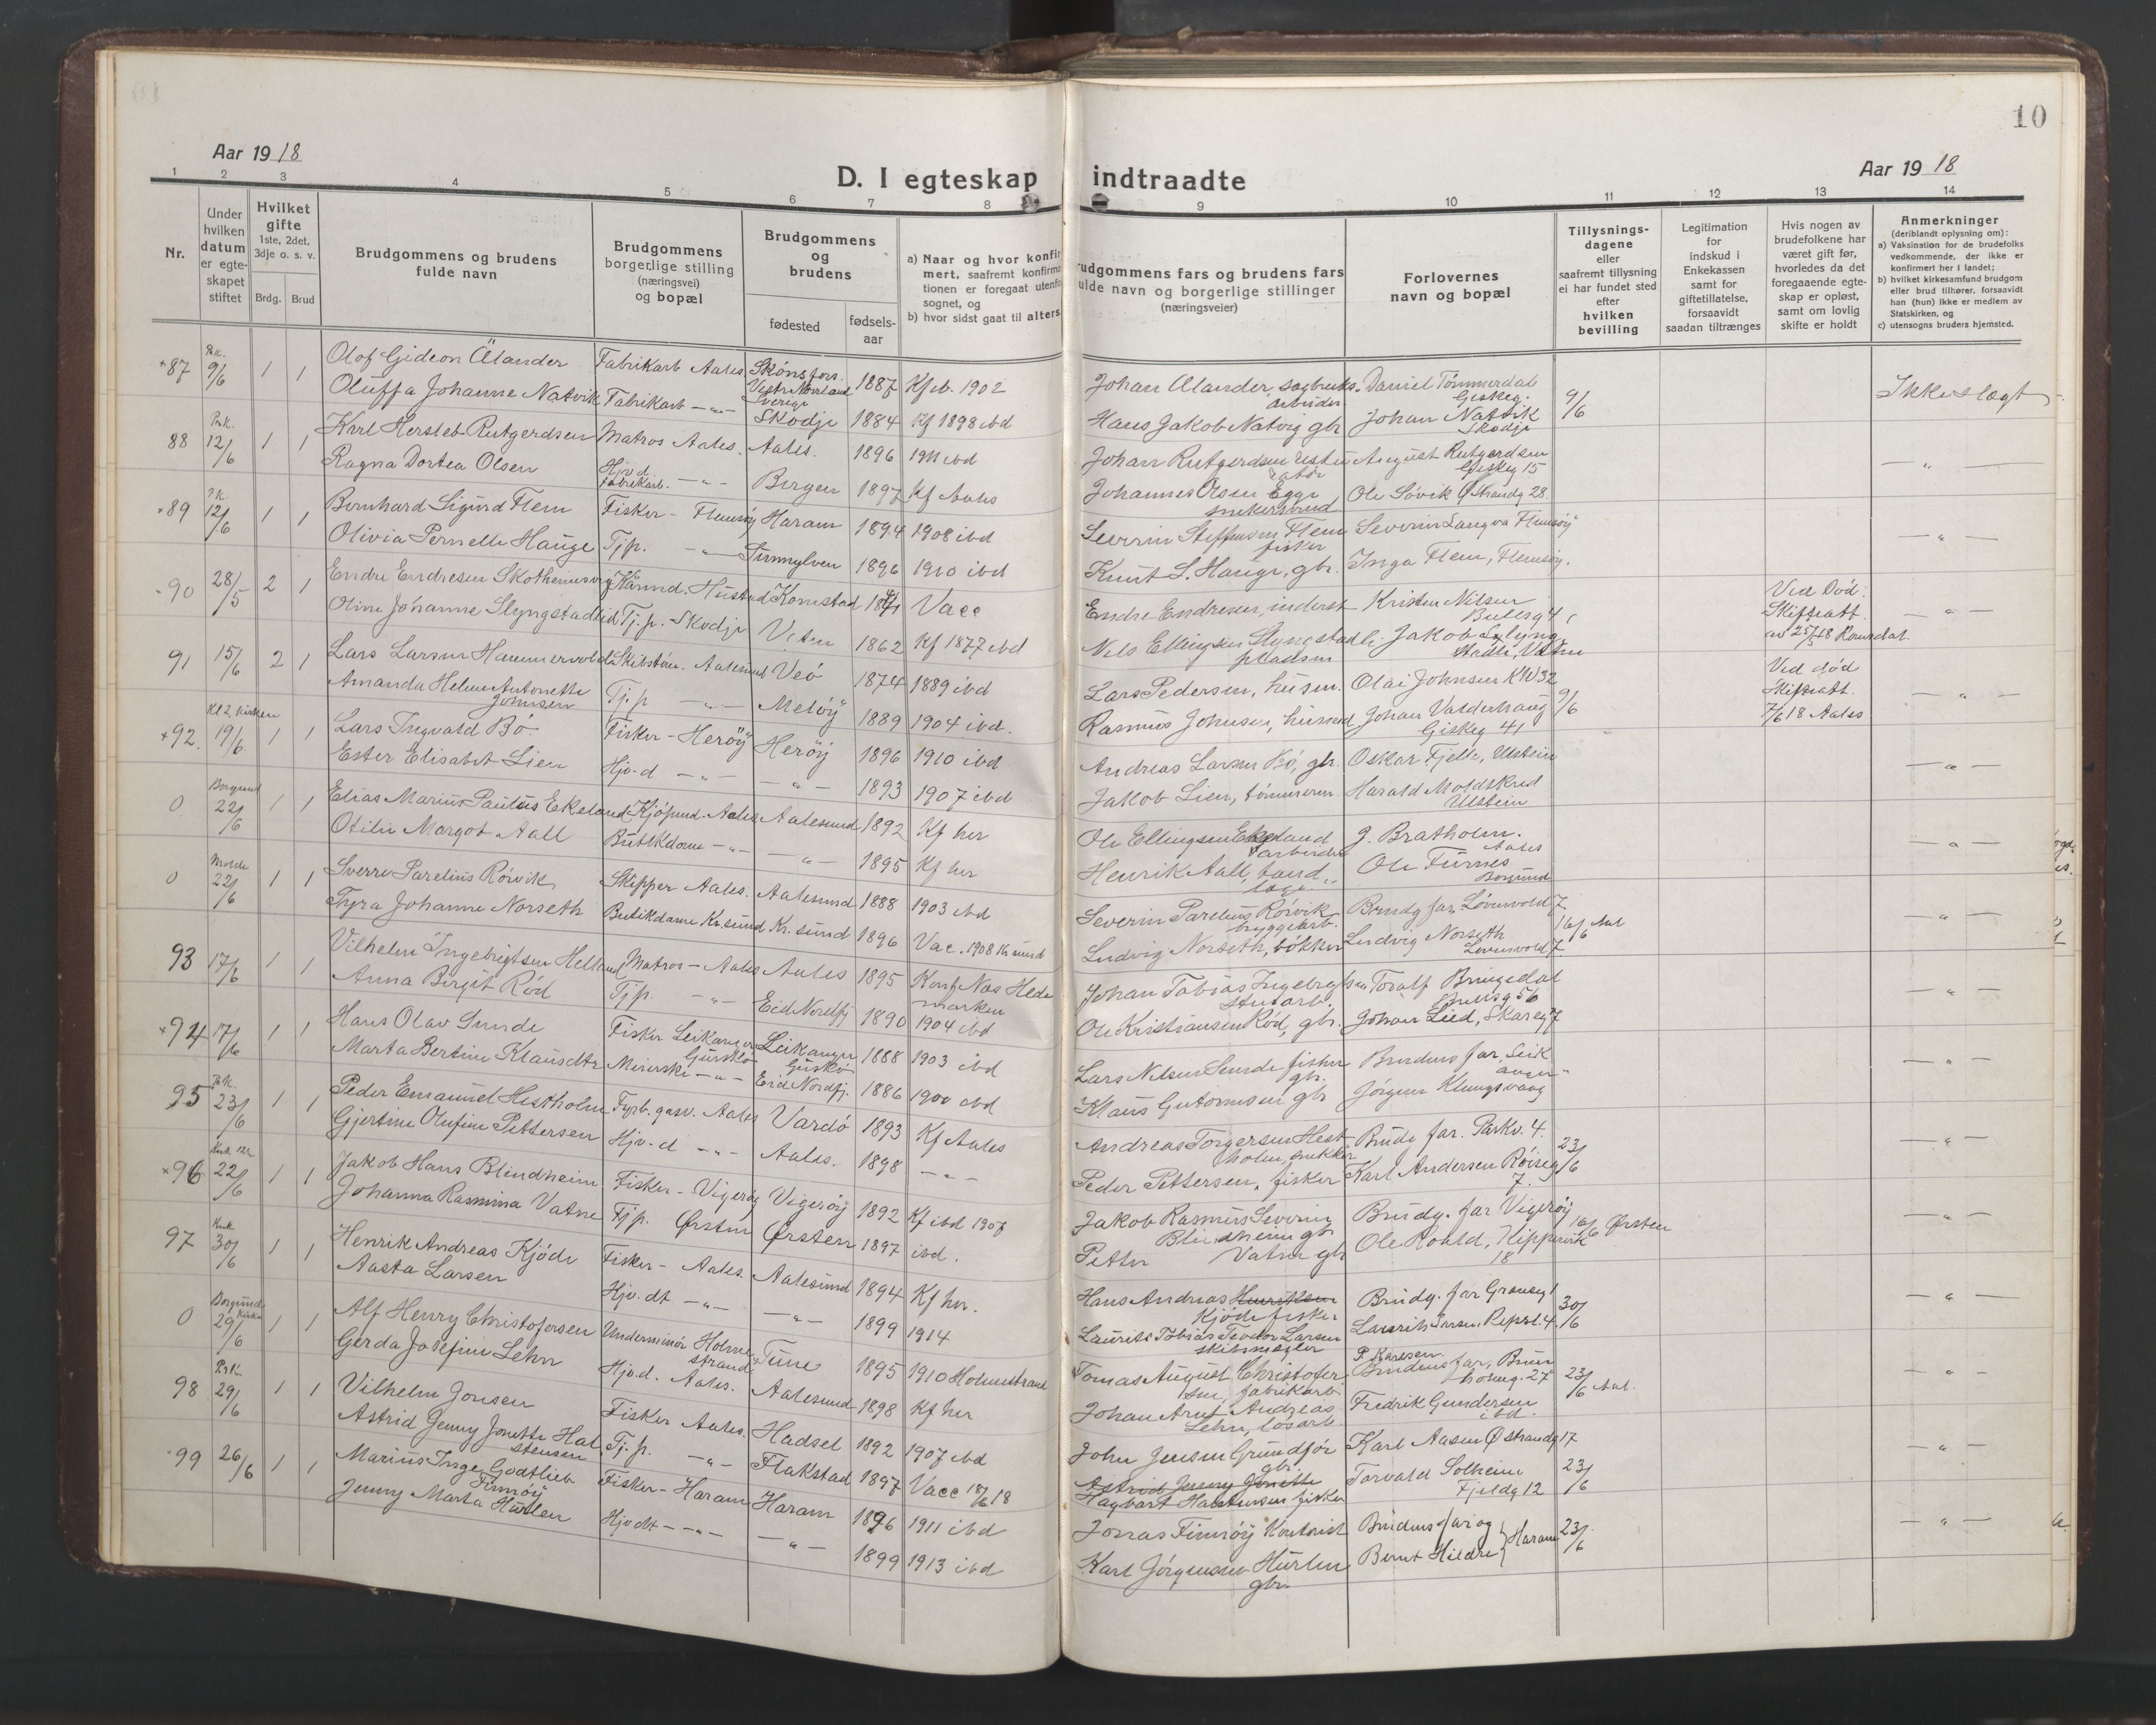 10
Aar 1918
Aar 1918
D. I egteskap indtraadte
1 2 3 4 5 6 7 8 9 10 11 12 13 14
Nr.
Under hvilken datum er egte-skapet stiftet
Hvilket gifte
1ste, 2det, 3dje o. s. v.
Brdg. Brud
Brudgommens og brudens fulde navn
Brudgommens borgerlige stilling (næringsvei) og bopæl
Brudgommens og brudens
fødested
fødsels-aar
a) Naar og hvor konfir
mert, saafremt konfirma
tionen er foregaat utenfo
sognet, og
b) hvor sidst gaat til alters
udgommens fars og brudens fars
ulde navn og borgerlige stillinger
(næringsveier)
Forlovernes navn og bopæl
Tillysnings-dagene eller saafremt tillysning ei har fundet sted efter hvilken bevilling
Legitimation for indskud i Enkekassen samt for giftetillatelse, forsaavidt saadan tiltrænges
Hvis nogen av brudefolkene har været gift før, hvorledes da det foregaaende egte-skap er opløst, samt om lovlig skifte er holdt
Anmerkninger
(deriblandt oplysning om):
a) Vaksination for de brudefolks vedkommende, der ikke er konfirmert her i landet;
b) hvilket kirkesamfund brudgom eller brud tilhører, forsaavidt han (hun) ikke er medlem av Statskirken, og
c) utensogns bruders hjemsted.
+87 9/6 1 1 Olof Gideon Ålander Fabrikarb Aales. Skönsfors. Vestr Norrland Sverige 1887 Kf ib. 1902 Johan Ålander, sagbruks. arbeider Daniel Tömmerdal Giskeg. 9/6 Ikke slegt
Oluffa Johanne Natvik Fabrikarb -"- Skodje 1884 Kf 1898 ibd Hans Jakob Natvig gbr Johan Natvik Skodje
88 12/6 1 1 Karl Hersleb Rutgerdsen Matros Aales. Aales. 1896 1911 ibd Johan Rutgerdsen August Rutgerdsen Giskeg 15 -"-
Ragna Dortea Olsen Hjv.d. Fabrikarb. -"- Bergen 1897 Kf Aales Johannes Olsen Egge snekkersvend Ole Sövik Ø Strandg 28.
+89 12/6 1 1 Bernhard Sigurd Flem Fisker - Flemsöy Haram 1894 1908 ibd Severin Steffensen Flem fisker Severin Langva Flemsöy -"-
Olivia Pernelle Hauge Tjp. -"- Sunnylven 1896 1910 ibd Knut S. Hauge, gbr. Inga Flem, Flemsöy.
90 28/5 2 1 Endre Endresen Hustad Vacc Endre Endresen, inderst Kristen Nilsen Bulesg 4 Ved Död. Skifteatt. av 25/5 18 Romsdal -"-
Oline Johanne Slyngstadlid Tj.p. Skodje Vatne 1862 Kf 1877 ibd Nils Ellingsen Slyngstadli pladsm Jakob Slyngstadli, Vatne
91 15/6 2 1 Lars Larsen Hammervold Aalesund Veö 1874 1889 ibd Lars Pedersen, husm. Olai Johnsen K W 32 9/6 Ved död Skifteatt. 7/6 18 Aales -"-
Amanda Helene Antonette Johnsen Tj.p -"- Melöy 1889 1904 ibd. Rasmus Johnsen, husmd Johan Valderhaug Giskeg 41
+92. Kl 2, Kirken 19/6 1 1 Lars Ingvald Bö Fisker - Heröy Heröy 1896 1910 ibd Andreas Larsen Bö, gbr. Oskar Fjelle, Ulstein -"-
Ester Elisabet Lien Hjv-d -"- -"- 1893 1907 ibd Jakob Lien, tömmerm. Harald Moldskred Ulstein
0 Borgund 22/6 1 1 Elias Marius Paulus Ekeland Aales Aalesund 1892 Kf her Ole Ellingsen Ekeland arbeider J. Bratholm. Aales -"-
Otilie Margot Aall Butikdame -"- -"- 1895 Kf her Henrik Aall, tandlæge Ole Furnes Borgund
0 Molde 22/6 1 1 Sverre Parelius Rörvik Skipper Aales. Aalesund 1888 1903 ibd Severin Parelius Rörvik bryggearb. Brudg far, Lövenvold 7 16/6 Aal -"-
Tyra Johanne Norseth Butikdame Kr.sund Kr. sund 1896 Vac. 1908 Kr sund Ludvig Norseth, bökker Ludvig Norseth Lövenvold 7
93 17/6 1 1 Vilhelm Ingebrigtsen Helland Matros - Aales Aales 1895 Konf Nas Hedemarken Johan Tobias Ingebrigtsen Toralf Bringsdal Bulesg 56 -"-
Anna Birgit Röd Tjp. -"- Eid Nordfj 1890 1904 ibd Ole Kristiansen Röd, gbr. Johan Lied, Skareg 7
+94 17/6 1 1 Hans Olav Sunde Fisker Leikanger Gurskö Leikanger Gurskö 1888 1903 ibd Lars Nelsen Sunde fisker gbr. Brudens far, Leikanger -"-
Marta Bertine Klausdtr Meierske -"- Eid Nordfj. 1886 1900 ibd Klaus Gutormsen gbr Jörgen Klungsvaag
95 23/6 1 1 Peder Emanuel Hestholm Fyrb. gasv. Aales Vardö 1893 Kf Aales Andreas Torgersen Hestholm, snekker Brudg far. Parkv. 4. 23/6 -"-
Gjertine Olufine Pettersen Hjv-d -"- Aales. 1898 -"- Peder Pettersen, fisker Karl Andersen Röiseg 7.
+96 Kirk 22/6 1 1 Jakob Hans Blindheim Fisker - Vigeröy Vigeröy 1892 Kf ibd 1907 Jakob Rasmus Severin Blindheim gbr Brudg. far Vigeröy 16/6 Ørsten -"-
Johanna Rasmina Vatne Tjp. Ørsten Ørsten 1897 ibd. Petter Vatne gbr Ole Roald, Kippervik 18
97 Kirk 30/6 1 1 Henrik Andreas Kjöde Fisker - Aales. Aalesund 1894 Kf her. Hans Andreas Henriksen Kjöde fisker Brudg. far 30/6 -"-
Aasta Larsen Hjv.dt -"- -"- 1899 1914 Laurits Tobias Teodor Larsen skibsmægler
0 Borgund Kirke 29/6 1 1 Alf Henry Christofersen Underminör Holmestrand Tune 1895 1910 Holmestrand Tomas August Christofersen, fabrikarb. Brudens far, 23/6 Aal. -"-
Gerda Josefine Lehn Hjv.d. Aales. Aalesund 1898 Kf her Johan Arnt Andreas Lehn, lösarb Fredrik Gundersen ibd.
98 29/6 1 1 Vilhelm Jonsen Fisker Aales. Hadsel 1892 1907 ibd John Jensen Grundför gbr. Karl Aasen Ø Strandg 17 23/6 -"-
Astrid Jenny Jonette Halstensen Tj.p. -"- Flakstad 1897 Vacc 18/6 18 Astrid Jenny Jonette Hagbart Halstensen fisker Torvald Solheim Fjeldg 12
99 26/6 1 1 Marius Inge Godtlieb Finnöy Fisker - Haram Haram 1896 1911 ibd Jonas Finnöy Kontorist Brudens far og 23/6 -"-
Jenny Marta Hurlen Hjvdt -"- -"- 1899 1913 ibd Karl Jörgensen Hurlen gbr. Bernt Hildre Haram